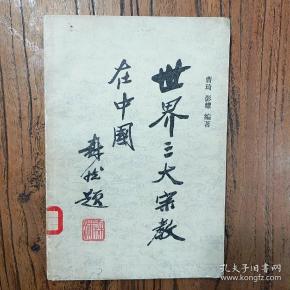 曹琦 彭耀 编著
世界三大宗教
在中國
孔夫子旧书网